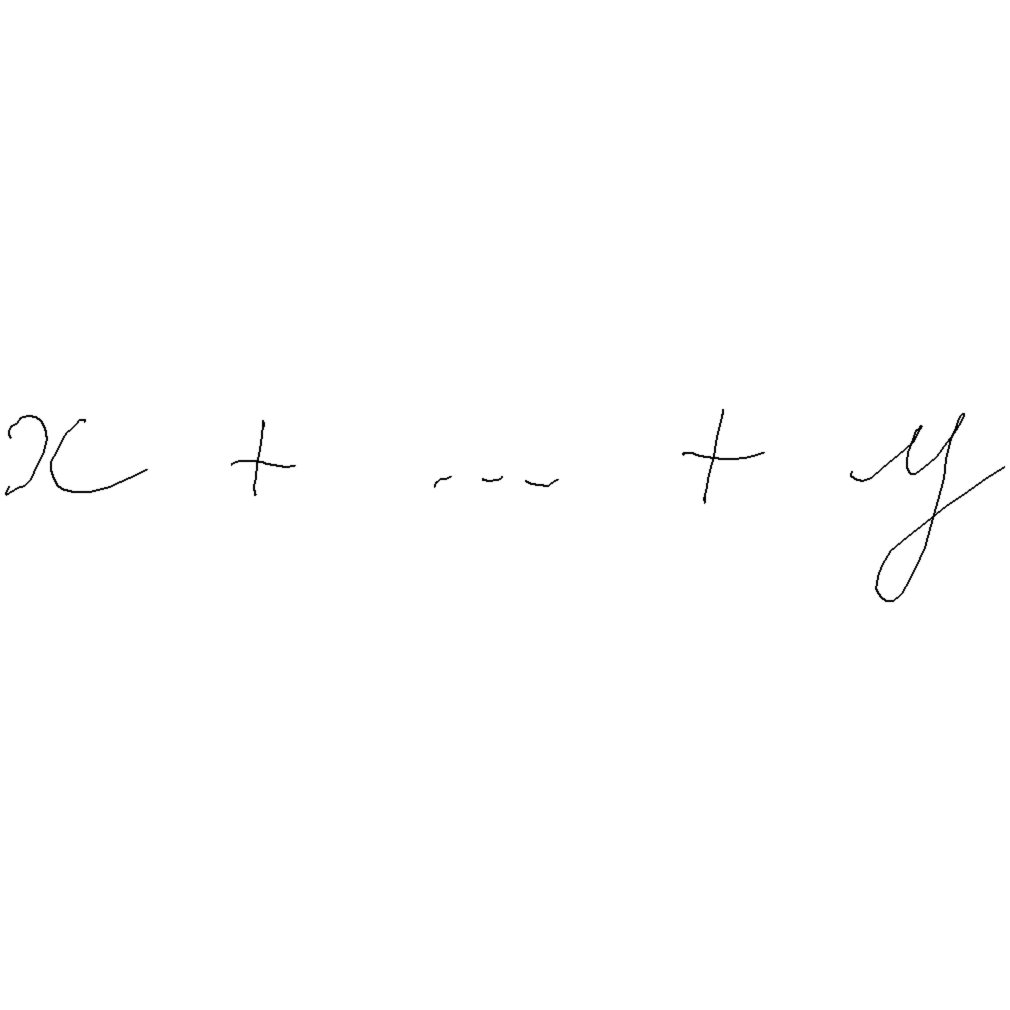 x + ... + y